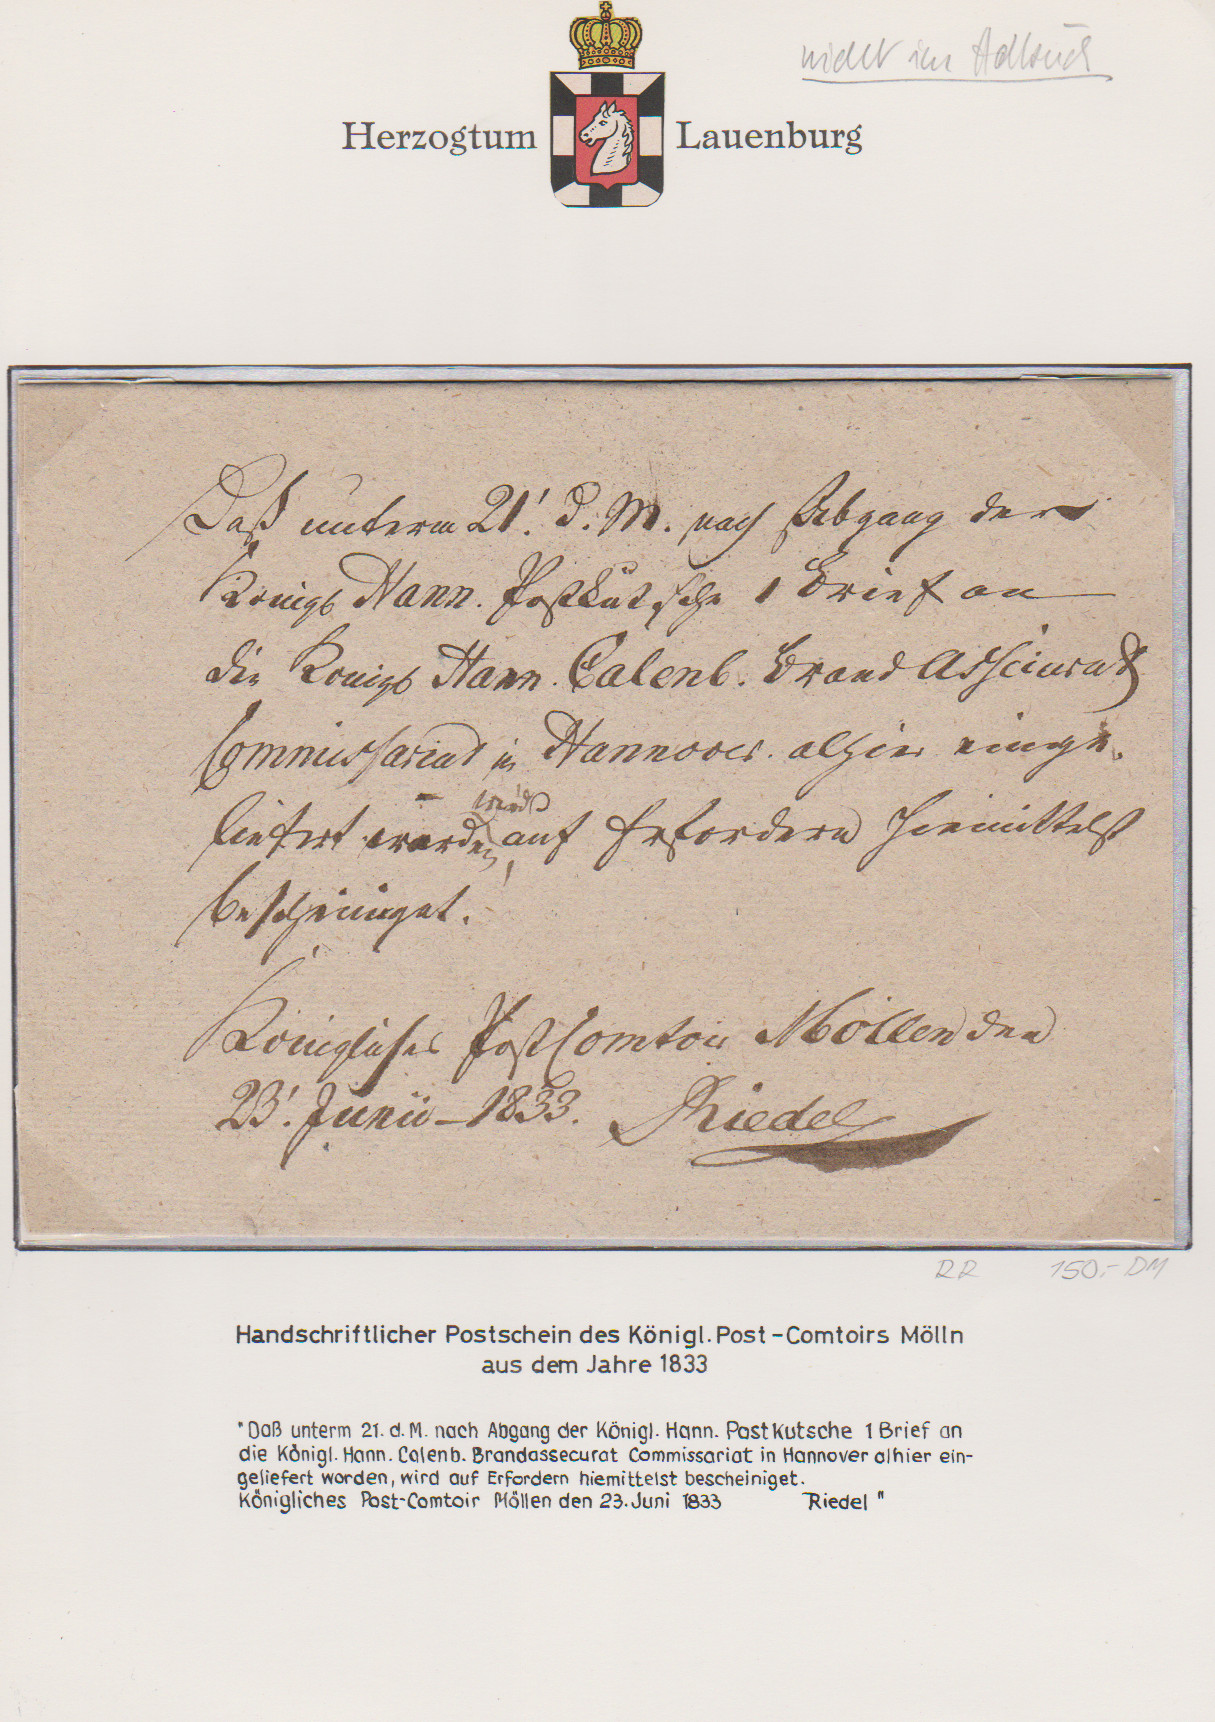 nicht im
Herzogtum Lauenburg
Daß unterm 21! d. M. nach Abgang der
Königl Hann. Postkutsche 1 Brief an
die Königl Hann. Calenb. Brand Assecurat
Commissariat in Hannover alhier einge-
wird
liefert worden, auf Erfordern hiemittelst
bescheiniget.
Königliches Post Comtoir Möllen den
23! Junii – 1833. Riedel
RR 150,- DM
Handschriftlicher Postschein des Königl. Post-Comtoirs Mölln
aus dem Jahre 1833
"Daß unterm 21. d. M. nach Abgang der Königl. Hann. Postkutsche 1 Brief an
die Königl. Hann. Calenb. Brandassecurat Commissariat in Hannover alhier ein-
geliefert worden, wird auf Erfordern hiemittelst bescheiniget.
Königliches Post-Comtoir Möllen den 23. Juni 1833 Riedel"